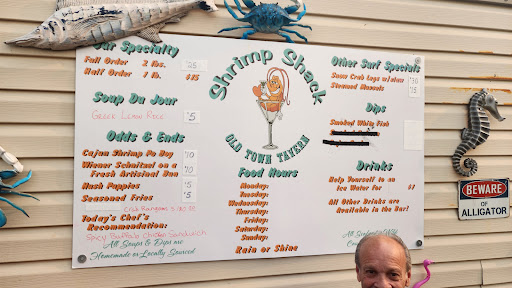 Our Specialty
Full Order 2 lbs. $25
Half Order 1 lb. $15
Soup Du Jour
Greek Lemon Rice $5
Odds & Ends
Cajun Shrimp Po Boy $10
Wiener Schnitzel on a
Fresh Artisinal Bun $10
Hush Puppies $5
Seasoned Fries $5
Crab Rangoons
Today's Chef's
Recommendation:
Spicy Buffalo Chicken Sandwich
All Soups & Dips are
Homemade or Locally Sourced
Shrimp Shack
Old Town Tavern
Food Hours
Monday:
Tuesday:
Wednesday:
Thursday:
Friday:
Saturday:
Sunday:
Rain or Shine
Other Surf Specials
Snow Crab Legs w/slaw $30
Steamed Mussels
Dips
Smoked White Fish
Drinks
Help Yourself to an
Ice Water for $1
All Other Drinks are
Available in the Bar!
All Seafood is Wild
BEWARE
of ALLIGATOR